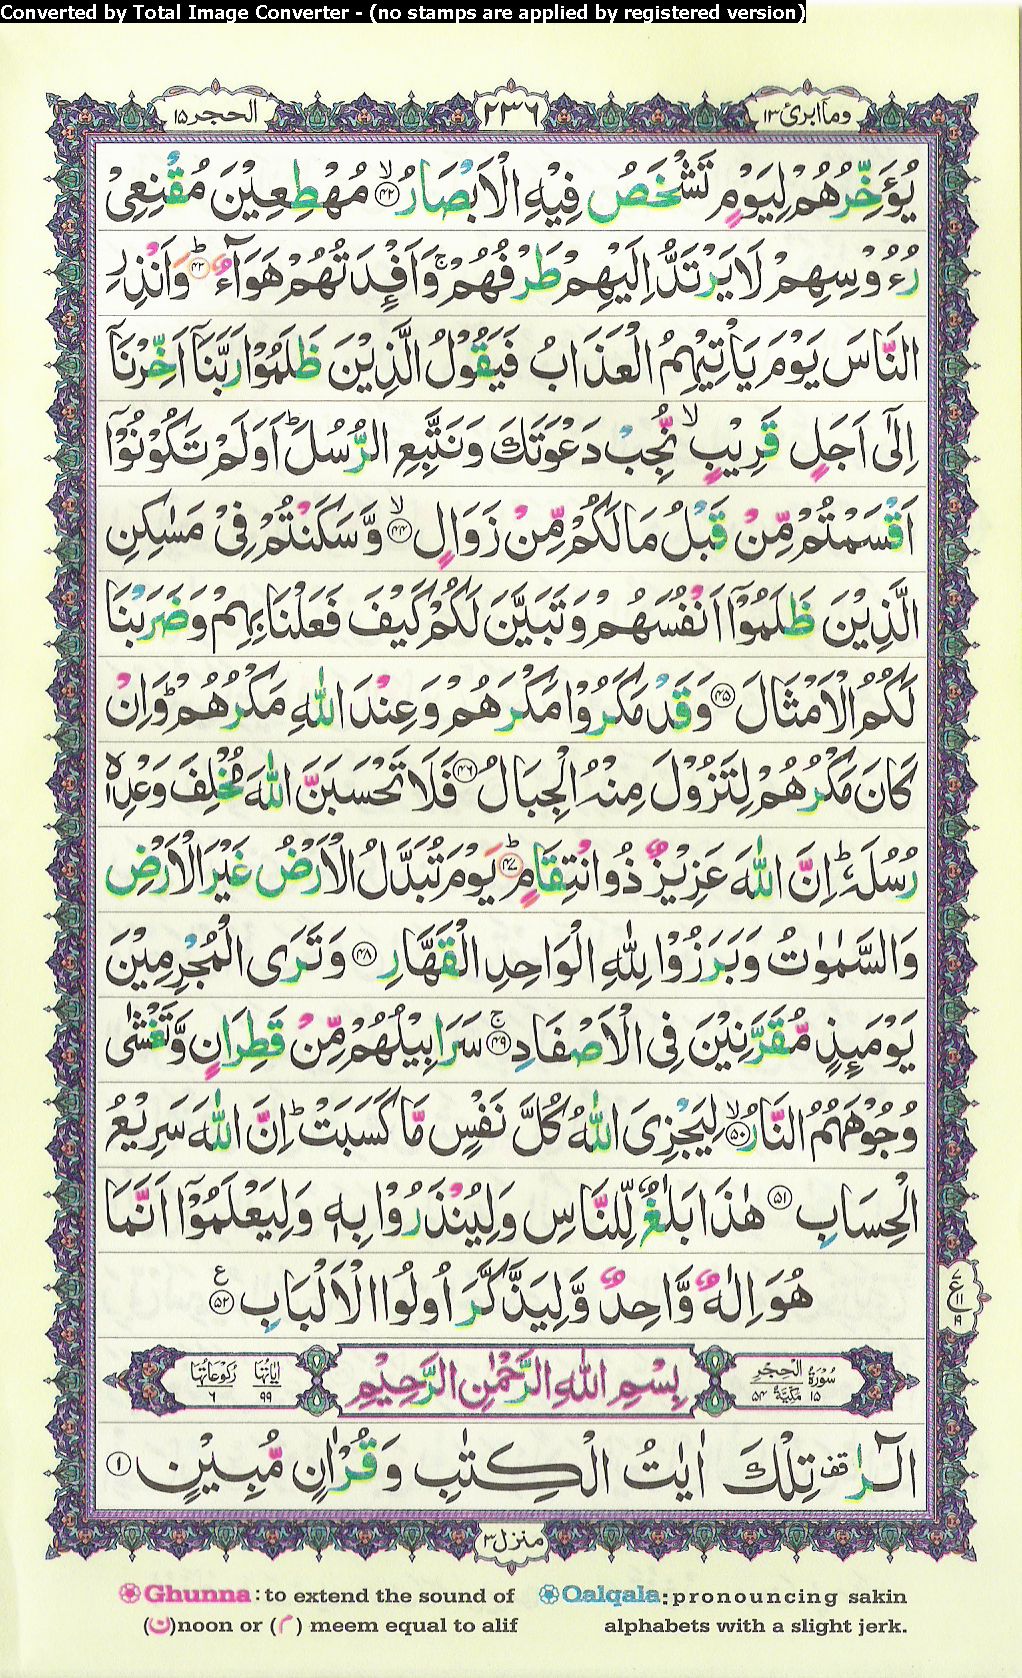 Converted by Total Image Converter - (no stamps are applied by registered version)
وما ابرئ ١٣
٢٣٦
الحجر ١٥
يُؤَخِّرُهُمْ لِيَوْمٍ تَشْخَصُ فِيْهِ الْاَبْصَارُ ۙ‏﴿۴۲﴾ مُهْطِعِيْنَ مُقْنِعِىْ
رُءُوْسِهِمْ لَا يَرْتَدُّ اِلَيْهِمْ طَرْفُهُمْ ۚ وَاَفْـِٕدَتُهُمْ هَوَآءٌ ؕ‏﴿۴۳﴾ وَاَنْذِرِ
النَّاسَ يَوْمَ يَاْتِيْهِمُ الْعَذَابُ فَيَقُوْلُ الَّذِيْنَ ظَلَمُوْا رَبَّنَاۤ اَخِّرْنَاۤ
اِلٰٓى اَجَلٍ قَرِيْبٍ ۙ نُّجِبْ دَعْوَتَكَ وَنَتَّبِعِ الرُّسُلَ ؕ اَوَلَمْ تَكُوْنُوْۤا
اَقْسَمْتُمْ مِّنْ قَبْلُ مَا لَكُمْ مِّنْ زَوَالٍ ۙ‏﴿۴۴﴾ وَّسَكَنْتُمْ فِىْ مَسٰكِنِ
الَّذِيْنَ ظَلَمُوْۤا اَنْفُسَهُمْ وَتَبَيَّنَ لَكُمْ كَيْفَ فَعَلْنَا بِهِمْ وَضَرَبْنَا
لَكُمُ الْاَمْثَالَ‏﴿۴۵﴾ وَقَدْ مَكَرُوْا مَكْرَهُمْ وَعِنْدَ اللّٰهِ مَكْرُهُمْ ؕ وَاِنْ
كَانَ مَكْرُهُمْ لِتَزُوْلَ مِنْهُ الْجِبَالُ‏﴿۴۶﴾ فَلَا تَحْسَبَنَّ اللّٰهَ مُخْلِفَ وَعْدِهٖ
رُسُلَهٗ ؕ اِنَّ اللّٰهَ عَزِيْزٌ ذُو انْتِقَامٍ ؕ‏﴿۴۷﴾ يَوْمَ تُبَدَّلُ الْاَرْضُ غَيْرَ الْاَرْضِ
وَالسَّمٰوٰتُ وَبَرَزُوْا لِلّٰهِ الْوَاحِدِ الْقَهَّارِ‏﴿۴۸﴾ وَتَرَى الْمُجْرِمِيْنَ
يَوْمَئِذٍ مُّقَرَّنِيْنَ فِى الْاَصْفَادِ ۚ‏﴿۴۹﴾ سَرَابِيْلُهُمْ مِّنْ قَطِرَانٍ وَّتَغْشٰى
وُجُوْهَهُمُ النَّارُ ۙ‏﴿۵۰﴾ لِيَجْزِىَ اللّٰهُ كُلَّ نَفْسٍ مَّا كَسَبَتْ ؕ اِنَّ اللّٰهَ سَرِيْعُ
الْحِسَابِ‏﴿۵۱﴾ هٰذَا بَلٰغٌ لِّلنَّاسِ وَلِيُنْذَرُوْا بِهٖ وَلِيَعْلَمُوْۤا اَنَّمَا
هُوَ اِلٰهٌ وَّاحِدٌ وَّلِيَذَّكَّرَ اُولُوا الْاَلْبَابِ‏﴿۵۲﴾ ع
ع ٧ ١١ ١٩
سُوْرَةُ الْحِجْرِ ١٥ مَكِّيَّةٌ ٥٤
بِسْمِ اللّٰهِ الرَّحْمٰنِ الرَّحِيْمِ
اٰيَاتُهَا ٩٩ رُكُوْعَاتُهَا ٦
الٓرٰ قف تِلْكَ اٰيٰتُ الْكِتٰبِ وَقُرْاٰنٍ مُّبِيْنٍ‏﴿۱﴾
منزل ٣
Ghunna: to extend the sound of (ن)noon or (م) meem equal to alif
Qalqala: pronouncing sakin alphabets with a slight jerk.